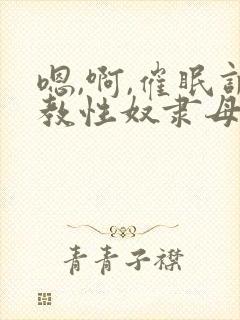 嗯,啊,催眠
教性奴隶母
青青子襟